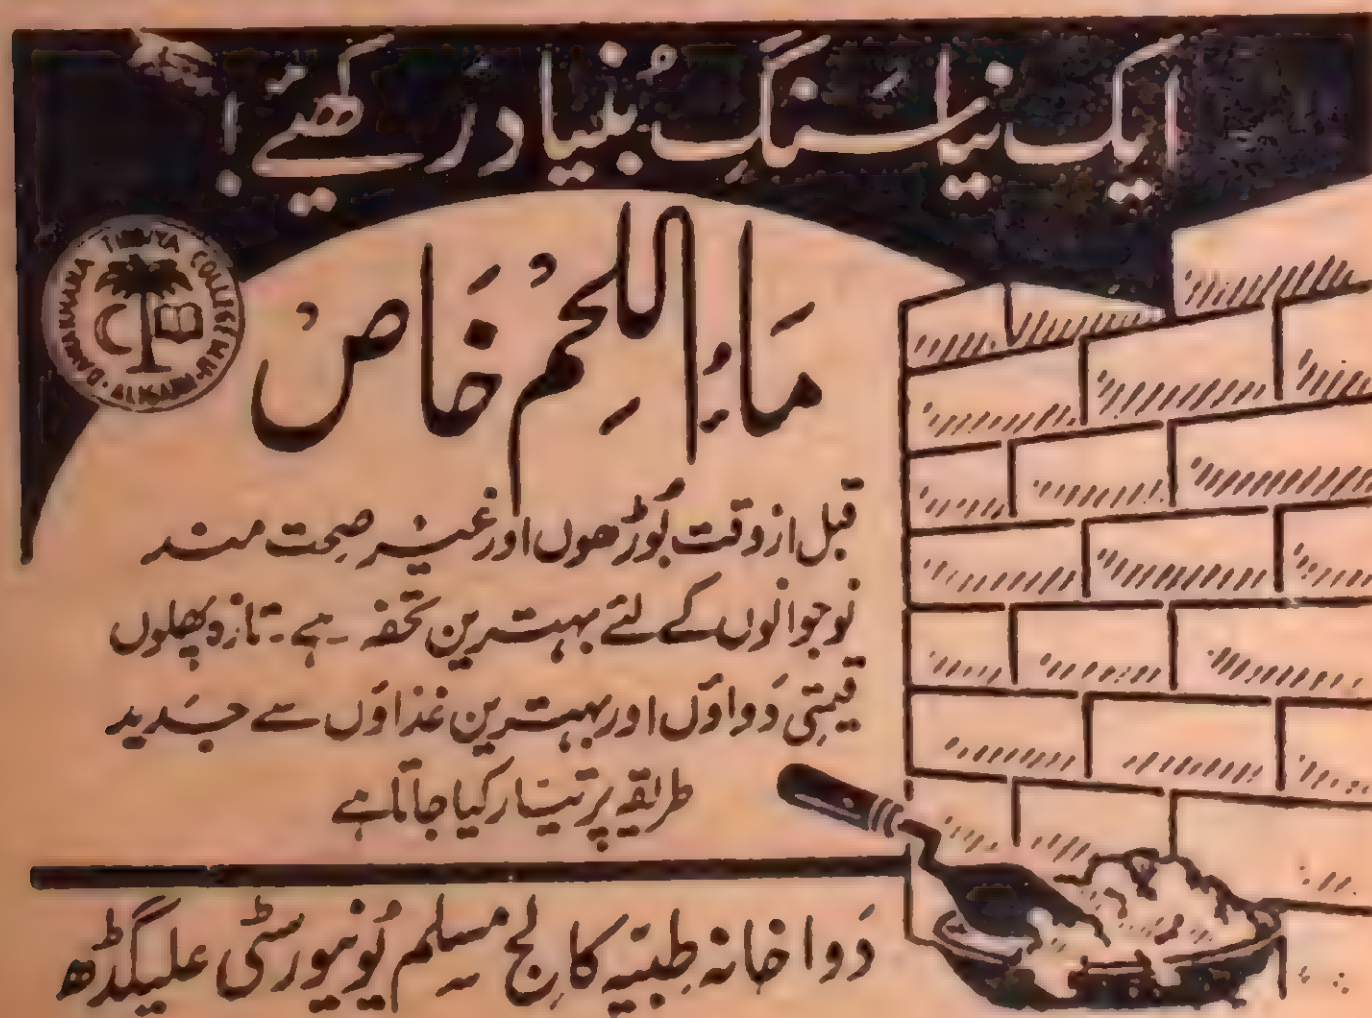 ایک نیا سنگِ بُنیاد رَکھیے!
DAWAKHANA TIBBIYA COLLEGE M.U. ALIGARH
مَاءُ اللحِمْ خَاصْ
قبل از وقت بُوڑھوں اور غیر صِحت مند
نوجوانوں کے لئے بہترین تحفہ ہے۔ تازہ پھلوں
قیمتی دَواؤں اور بہترین غذاؤں سے جَدید
طریقہ پر تیَار کیا جاتا ہے
دَوا خانہ طبیّہ کالج مُسلم یُونیورسٹی علیگڈھ